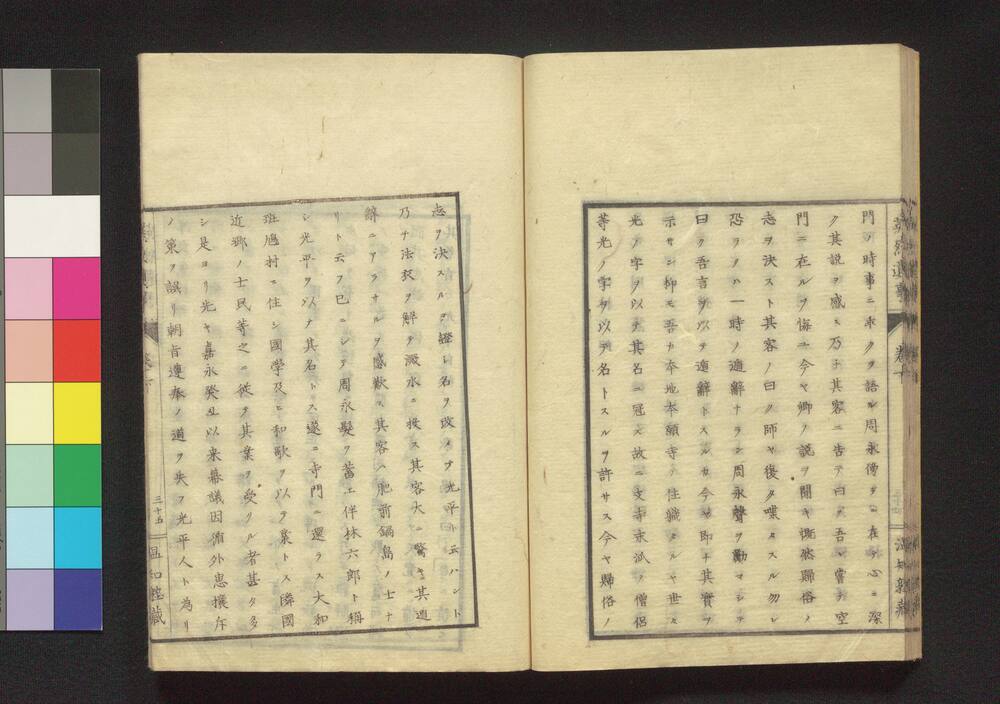 門ノ時事ニ求クヲ語ル周永僧ヲ以テ在ルカ心ニ深
ク其説ヲ感ミ乃チ其客ニ告テ曰ク吾レ嘗テ空
門ニ在ルヲ悔ユ今ヤ卿ノ説ヲ聞キ慨然歸俗ノ
志ヲ決スト其客ノ曰ク師ヤ復タ喋々スル勿レ
恐ラクハ一時ノ遁辭ナラン周永聲ヲ勵マシテ
曰ク吾言ヲ以テ遁辭トスルカ今ヤ即チ其實ヲ
示サン抑モ吾カ本地本願寺ノ住職タルヤ世々
光ノ字ヲ以テ其名ニ冠ス故ニ支寺末派ノ僧侶
等光ノ字ヲ以テ名トスルヲ許サス今ヤ歸俗ノ
巻十
志ヲ決スルノ證シ名ヲ改メテ光平ト云ハント
乃チ法衣ヲ解テ溅水ニ投ス其客大ニ驚キ其遁
辭ニアラサルヲ感歎ス其客ハ肥前鍋島ノ士ナ
リト云フ已ニシテ周永髮ヲ蓄エ伴林六郎ト稱
シ光平ヲ以テ其名トス遂ニ寺門ニ還ラス大和
班鳩村ニ住シ國學及ヒ和歌ヲ以テ業トス隣國
近鄉ノ士民等之ニ從テ其業ヲ受クル者甚タ多
シ是ヨリ光ヤ嘉永癸丑以来幕議因循外患攘斥
ノ策ヲ誤リ朝旨遵奉ノ道ヲ失フ光平人ト為リ
三十五